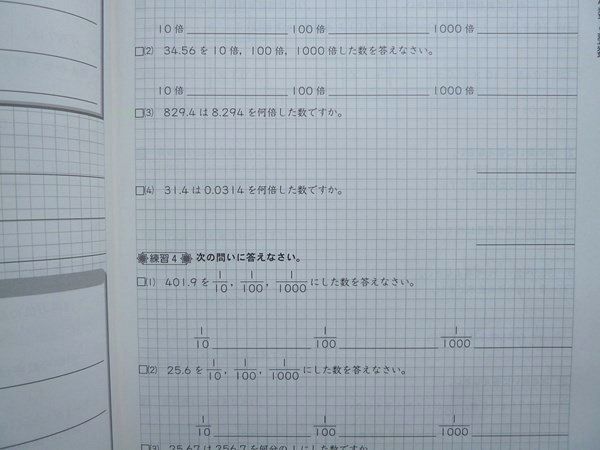 10倍 100倍 1000倍
□(2) 34.56を10倍，100倍，1000倍した数を答えなさい。
10倍 100倍 1000倍
□(3) 829.4は8.294を何倍した数ですか。
□(4) 31.4は0.0314を何倍した数ですか。
練習4 次の問いに答えなさい。
□(1) 401.9を1/10，1/100，1/1000にした数を答えなさい。
1/10 1/100 1/1000
□(2) 25.6を1/10，1/100，1/1000にした数を答えなさい。
1/10 1/100 1/1000
□(3) 25.67は256.7を何分の1にした数ですか